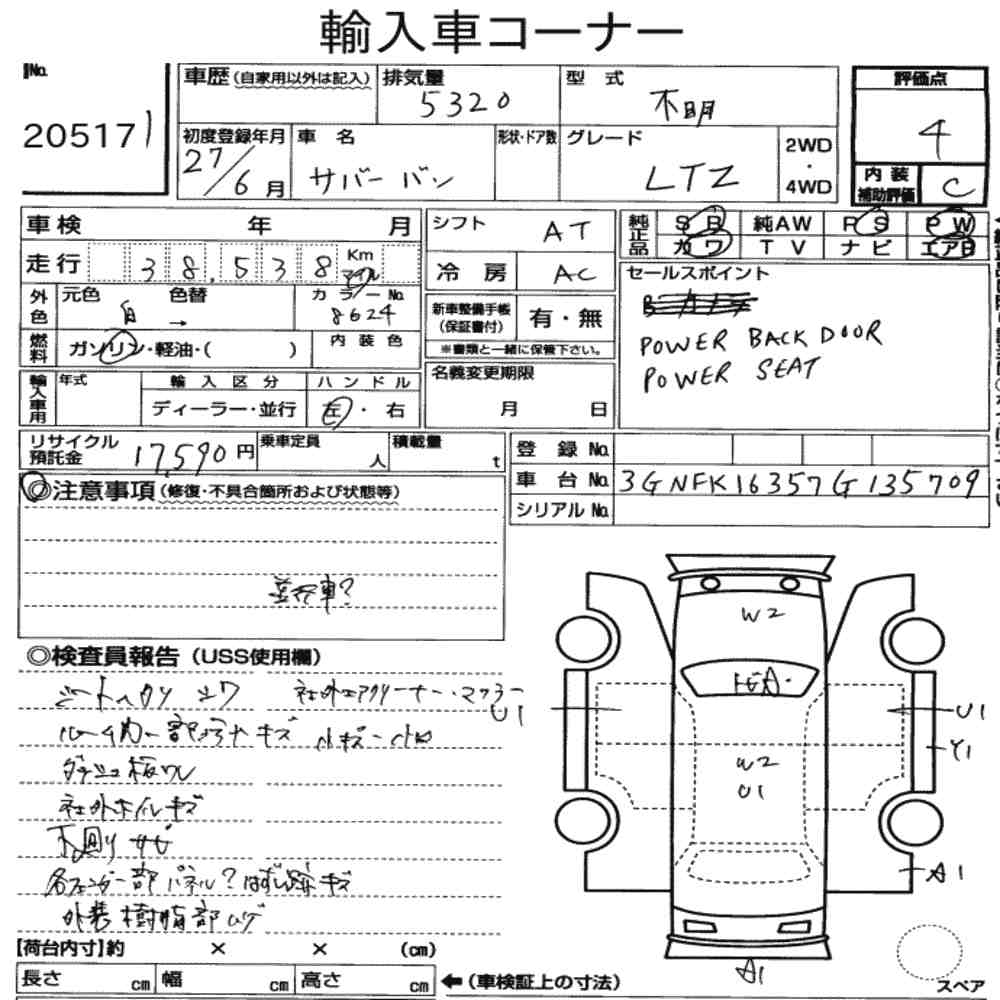 輸入車コーナー
No.
205171
車歴 (自家用以外は記入)
排気量 5320
型式 不明
初度登録年月 27/6月
車名 サバーバン
形状・ドア数
グレード LTZ
2WD・4WD
評価点 4
内装補助評価 C
車検 年 月
走行 38,538 Km マイル
外色 元色 白 色替 →
カラーNo. 8624
燃料 ガソリン・軽油・( )
内装色
輸入車用 年式
輸入区分 ディーラー・並行
ハンドル 左・右
シフト AT
冷房 AC
新車整備手帳(保証書付) 有・無
※書類と一緒に保管下さい。
名義変更期限 月 日
純正品 SR 純AW PS PW
カワ TV ナビ エアB
セールスポイント
POWER BACK DOOR
POWER SEAT
リサイクル預託金 17,590円
乗車定員 人
積載量 t
登録No.
車台No. 3GNFK16357G135709
シリアルNo.
◎注意事項(修復・不具合箇所および状態等)
並行車?
◎検査員報告(USS使用欄)
シートヘタリ シワ 社外エアクリーナー・マフラー
キズ 小キズ・小凹
社外ホイルキズ
下廻りサビ
各フェンダー部パネル?はずし跡キズ
外装樹脂部
W2
U1
U1
Y1
W2
U1
A1
A1
スペア
【荷台内寸】約 × × (cm)
長さ cm 幅 cm 高さ cm ←(車検証上の寸法)